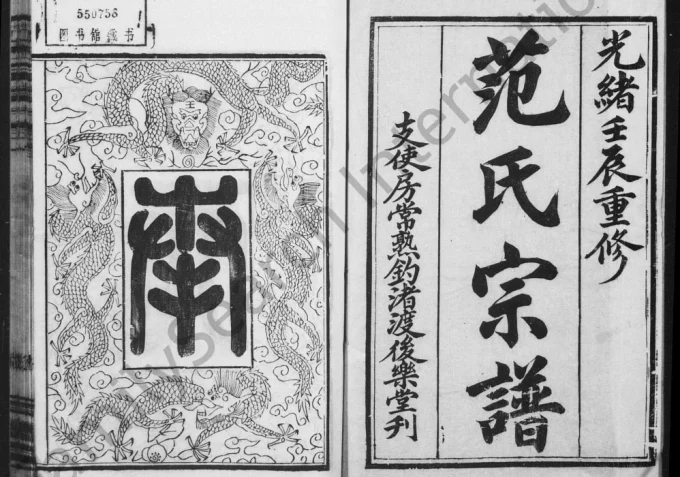 光緒壬辰重修
范氏宗譜
支使房常熟釣渚渡後樂堂刊
550756
图书馆藏书